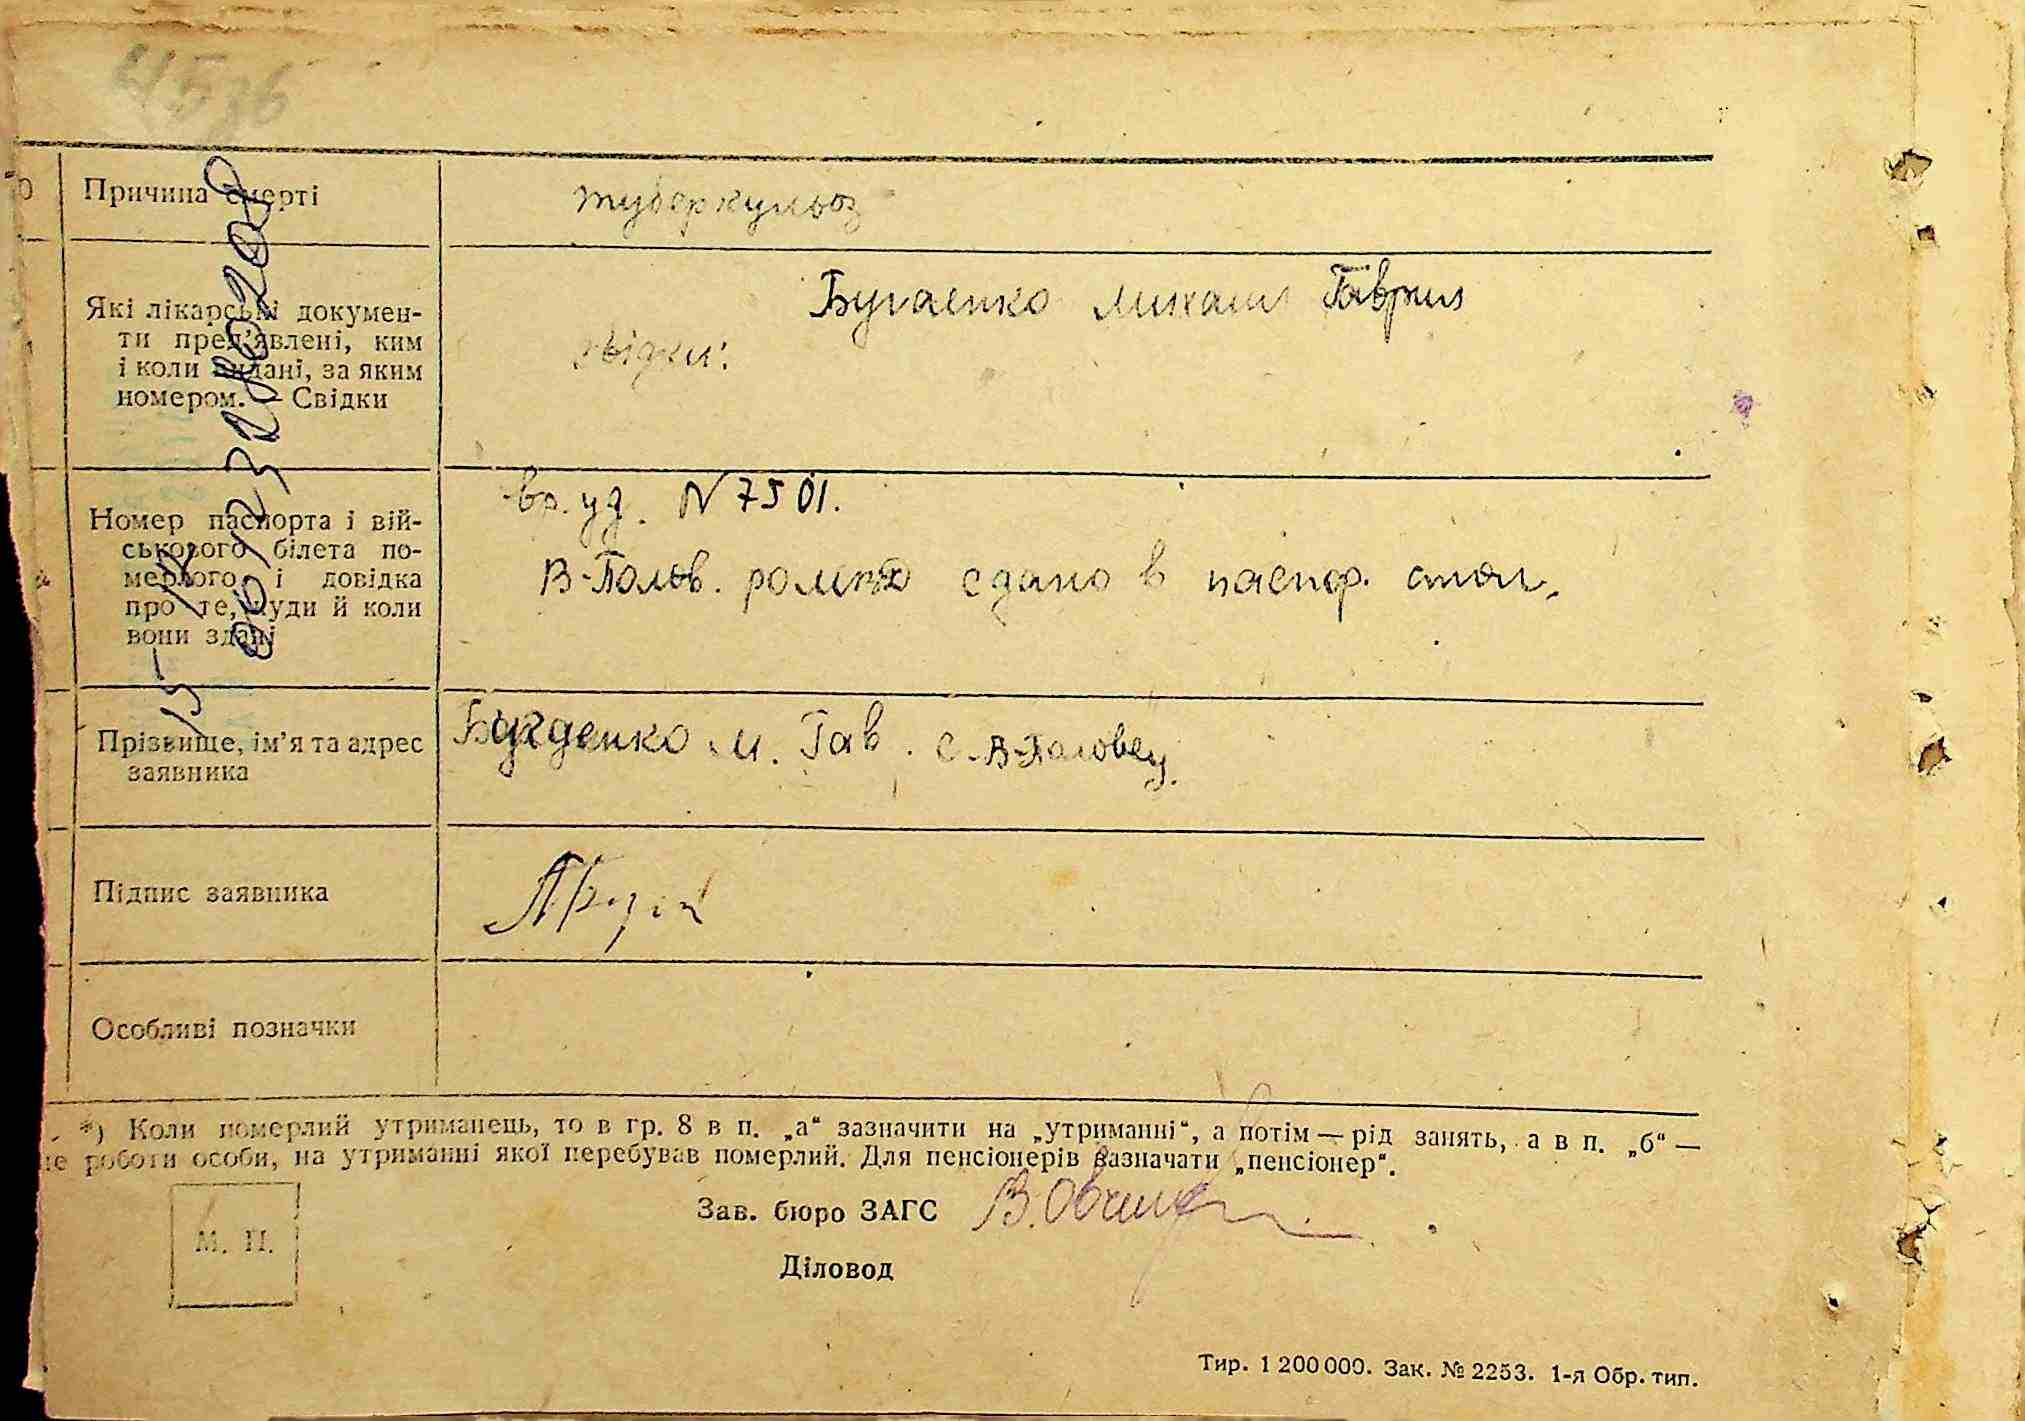 Причина смерті
туберкульоз
Які лікарські докумен-
ти пред’явлені, ким
і коли видані, за яким
номером. — Свідки
Бугаенко Михаил Гаврил
свідки:
Номер паспорта і вій-
ськового білета по-
мерлого і довідка
про те, куди й коли
вони здані
вр. уд. N 7501.
В-Полов. сдано в паспор. стол.
Прізвище, ім’я та адрес
заявника
М. Гав. с. В-Половец.
Підпис заявника
Особливі позначки
*) Коли померлий утриманець, то в гр. 8 в п. „а“ зазначити на „утриманні“, а потім — рід занять, а в п. „б“ —
це роботи особи, на утриманні якої перебував померлий. Для пенсіонерів зазначати „пенсіонер“.
Зав. бюро ЗАГС
М. П.
Діловод
Тир. 1 200 000. Зак. № 2253. 1-я Обр. тип.